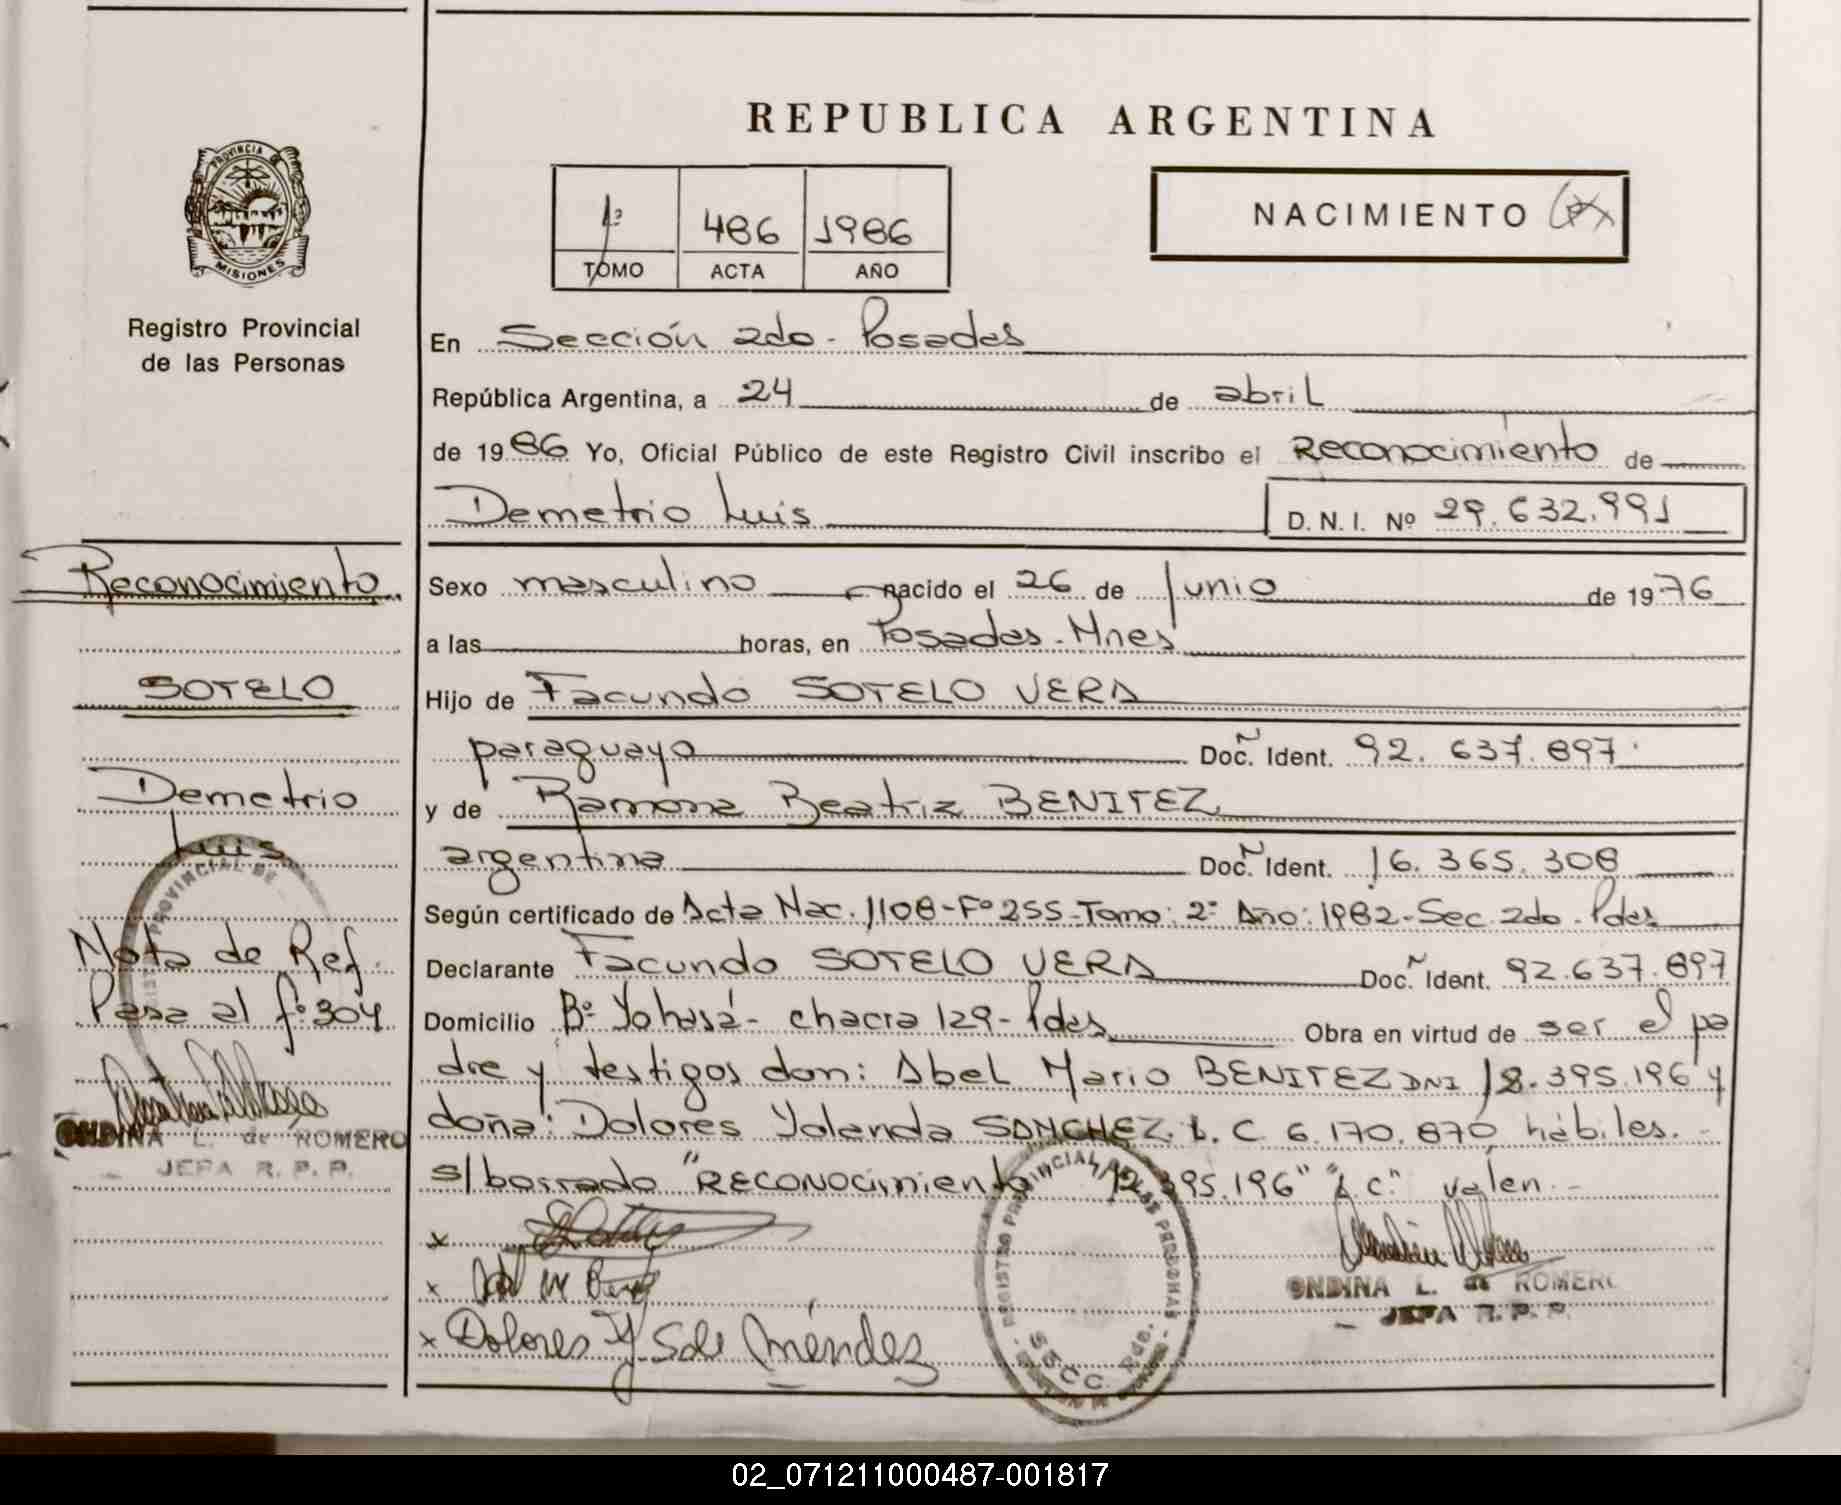 REPUBLICA ARGENTINA
PROVINCIA DE
MISIONES
Registro Provincial
de las Personas
1º 486 1986
TOMO ACTA AÑO
NACIMIENTO
En Sección 2do - Posadas
República Argentina, a 24 de abril
de 1986 Yo, Oficial Público de este Registro Civil inscribo el Reconocimiento de
Demetrio Luis D. N. I. Nº 29.632.991
Sexo masculino nacido el 26 de Junio de 1976
a las horas, en Posadas - Mnes
Hijo de Facundo SOTELO VERA
paraguayo Doc. Ident. 92.637.897
y de Ramona Beatriz BENITEZ
argentina Doc. Ident. 16.365.308
Según certificado de Acta Nac. 1108 - Fº 255 - Tomo: 2º Año: 1982 - Sec. 2do. Pdas
Declarante Facundo SOTELO VERA Doc. Ident. 92.637.897
Domicilio Bº Yohasá - chacra 129 - Pdas Obra en virtud de ser el pa
dre y testigos don: Abel Mario BENITEZ DNI 18.395.196 y
doña: Dolores Yolanda SANCHEZ L. C 6.170.870 hábiles. -
s/borrado "RECONOCimiento 395.196" "L C." valen. -
x
x
x Dolores Y Méndez
REGISTRO PROVINCIAL DE LAS PERSONAS
SECC. 2do.
ONDINA L. de ROMERO
JEFA R. P. P.
Reconocimiento
SOTELO
Demetrio
Luis
PROVINCIAL DE
Nota de Ref.
Pasa al fº 304
ONDINA L. de ROMERO
JEFA R. P. P.
02_071211000487-001817